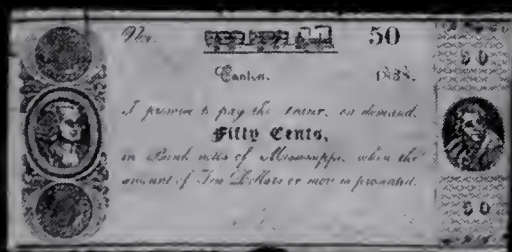 No. 50
Canton, 183
I promise to pay the bearer, on demand,
Fifty Cents,
in Bank notes of Mississippi, when the
amount of Ten Dollars or more is presented.
50
50